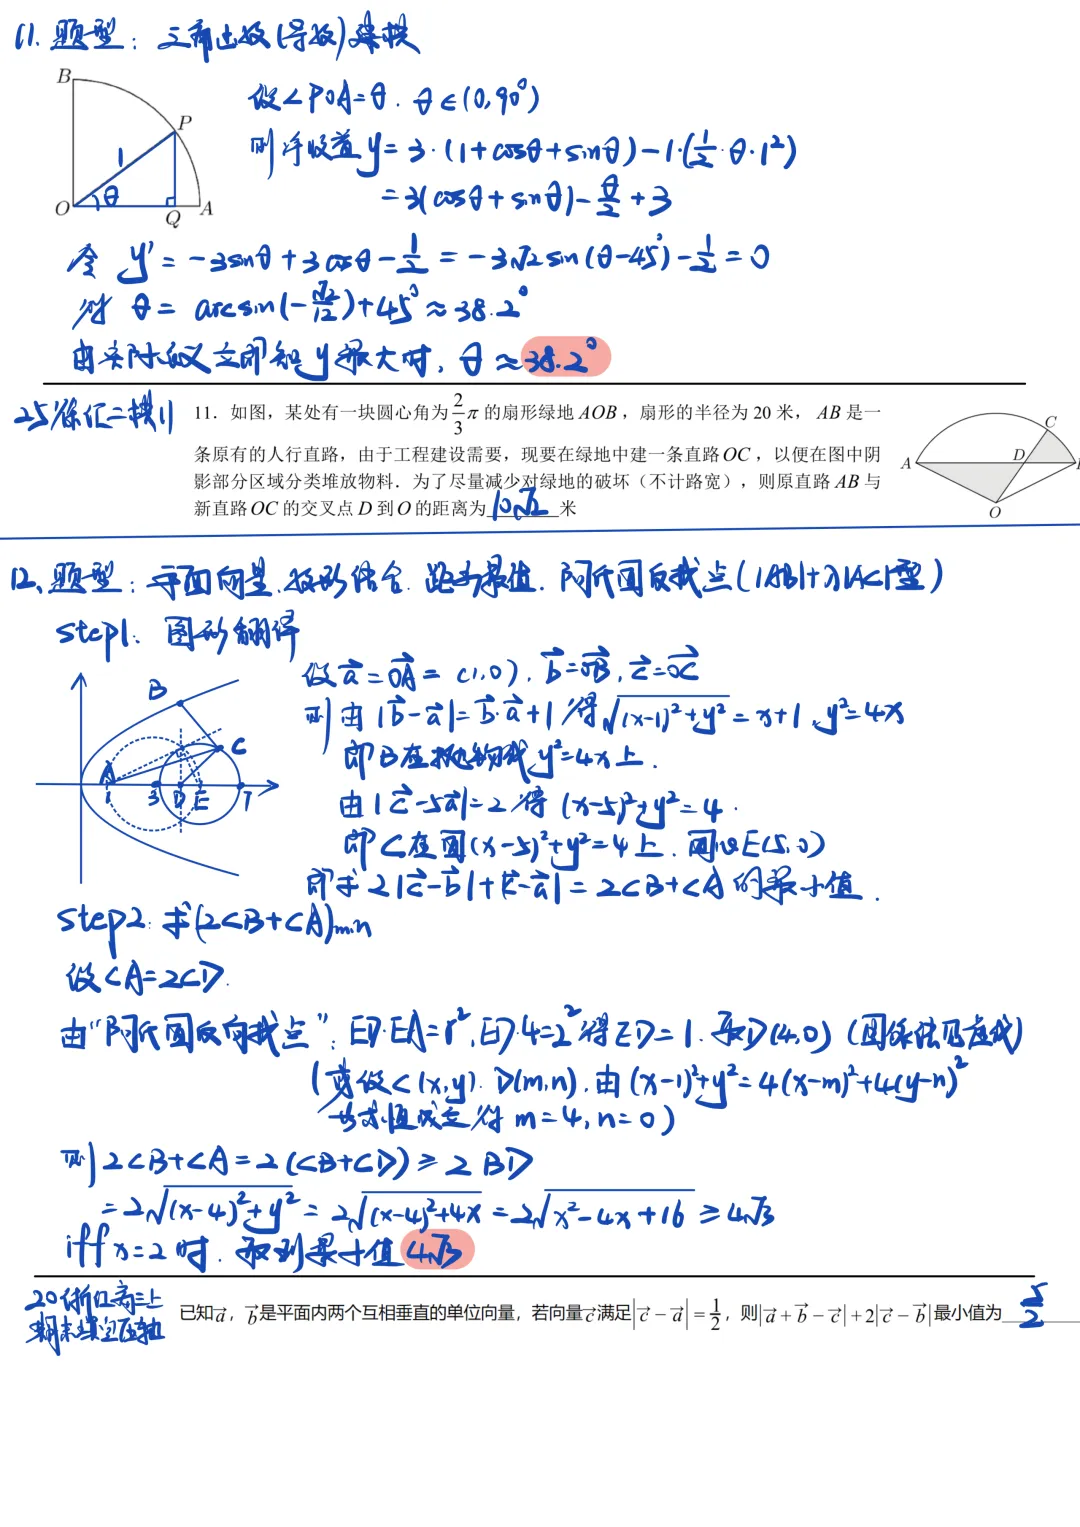 11. 题型：三角函数(导数)建模
B
P
1
θ
O
Q
A
设∠POA=θ. θ∈(0,90°)
则净收益 y=3·(1+cosθ+sinθ)-1·(½·θ·1²)
=3(cosθ+sinθ)-θ/2+3
令 y'=-3sinθ+3cosθ-½=-3√2sin(θ-45°)-½=0
得 θ=arcsin(-√2/12)+45°≈38.2°
由实际意义立即知y最大时, θ≈38.2°
25徐汇二模11
11．如图，某处有一块圆心角为 2/3 π 的扇形绿地 AOB，扇形的半径为 20 米，AB 是一
条原有的人行直路，由于工程建设需要，现要在绿地中建一条直路OC，以便在图中阴
影部分区域分类堆放物料．为了尽量减少对绿地的破坏（不计路宽），则原直路 AB 与
新直路 OC 的交叉点 D 到 O 的距离为 10√2 米
A
D
C
O
12. 题型：平面向量、数形结合. 距离最值. 阿氏圆反找点(|AB|+λ|AC|型)
Step1. 图形翻译
B
C
A
1
3
D
E
7
设a⃗=OA⃗=(1,0), b⃗=OB⃗, c⃗=OC⃗
则由|b⃗-a⃗|=b⃗·a⃗+1得√((x-1)²+y²)=x+1, y²=4x
即B在抛物线y²=4x上.
由|c⃗-5a⃗|=2得 (x-5)²+y²=4.
即C在圆(x-5)²+y²=4上. 圆心E(5,0)
即求2|c⃗-b⃗|+|c⃗-a⃗|=2CB+CA的最小值.
Step2: 求(2CB+CA)min
设CA=2CD.
由"阿氏圆反向找点": ED·EA=r², ED·4=2²得ED=1. 取D(4,0) (图像法见左线)
(或设C(x,y). D(m,n), 由(x-1)²+y²=4(x-m)²+4(y-n)²
恒成立得 m=4, n=0)
则2CB+CA=2(CB+CD)≥2BD
=2√((x-4)²+y²)=2√((x-4)²+4x)=2√(x²-4x+16)≥4√3
iff x=2时. 取到最小值4√3
20浙江高三上
期末填空压轴
已知a⃗，b⃗是平面内两个互相垂直的单位向量，若向量c⃗满足|c⃗-a⃗|=1/2，则|a⃗+b⃗-c⃗|+2|c⃗-b⃗|最小值为 5/2